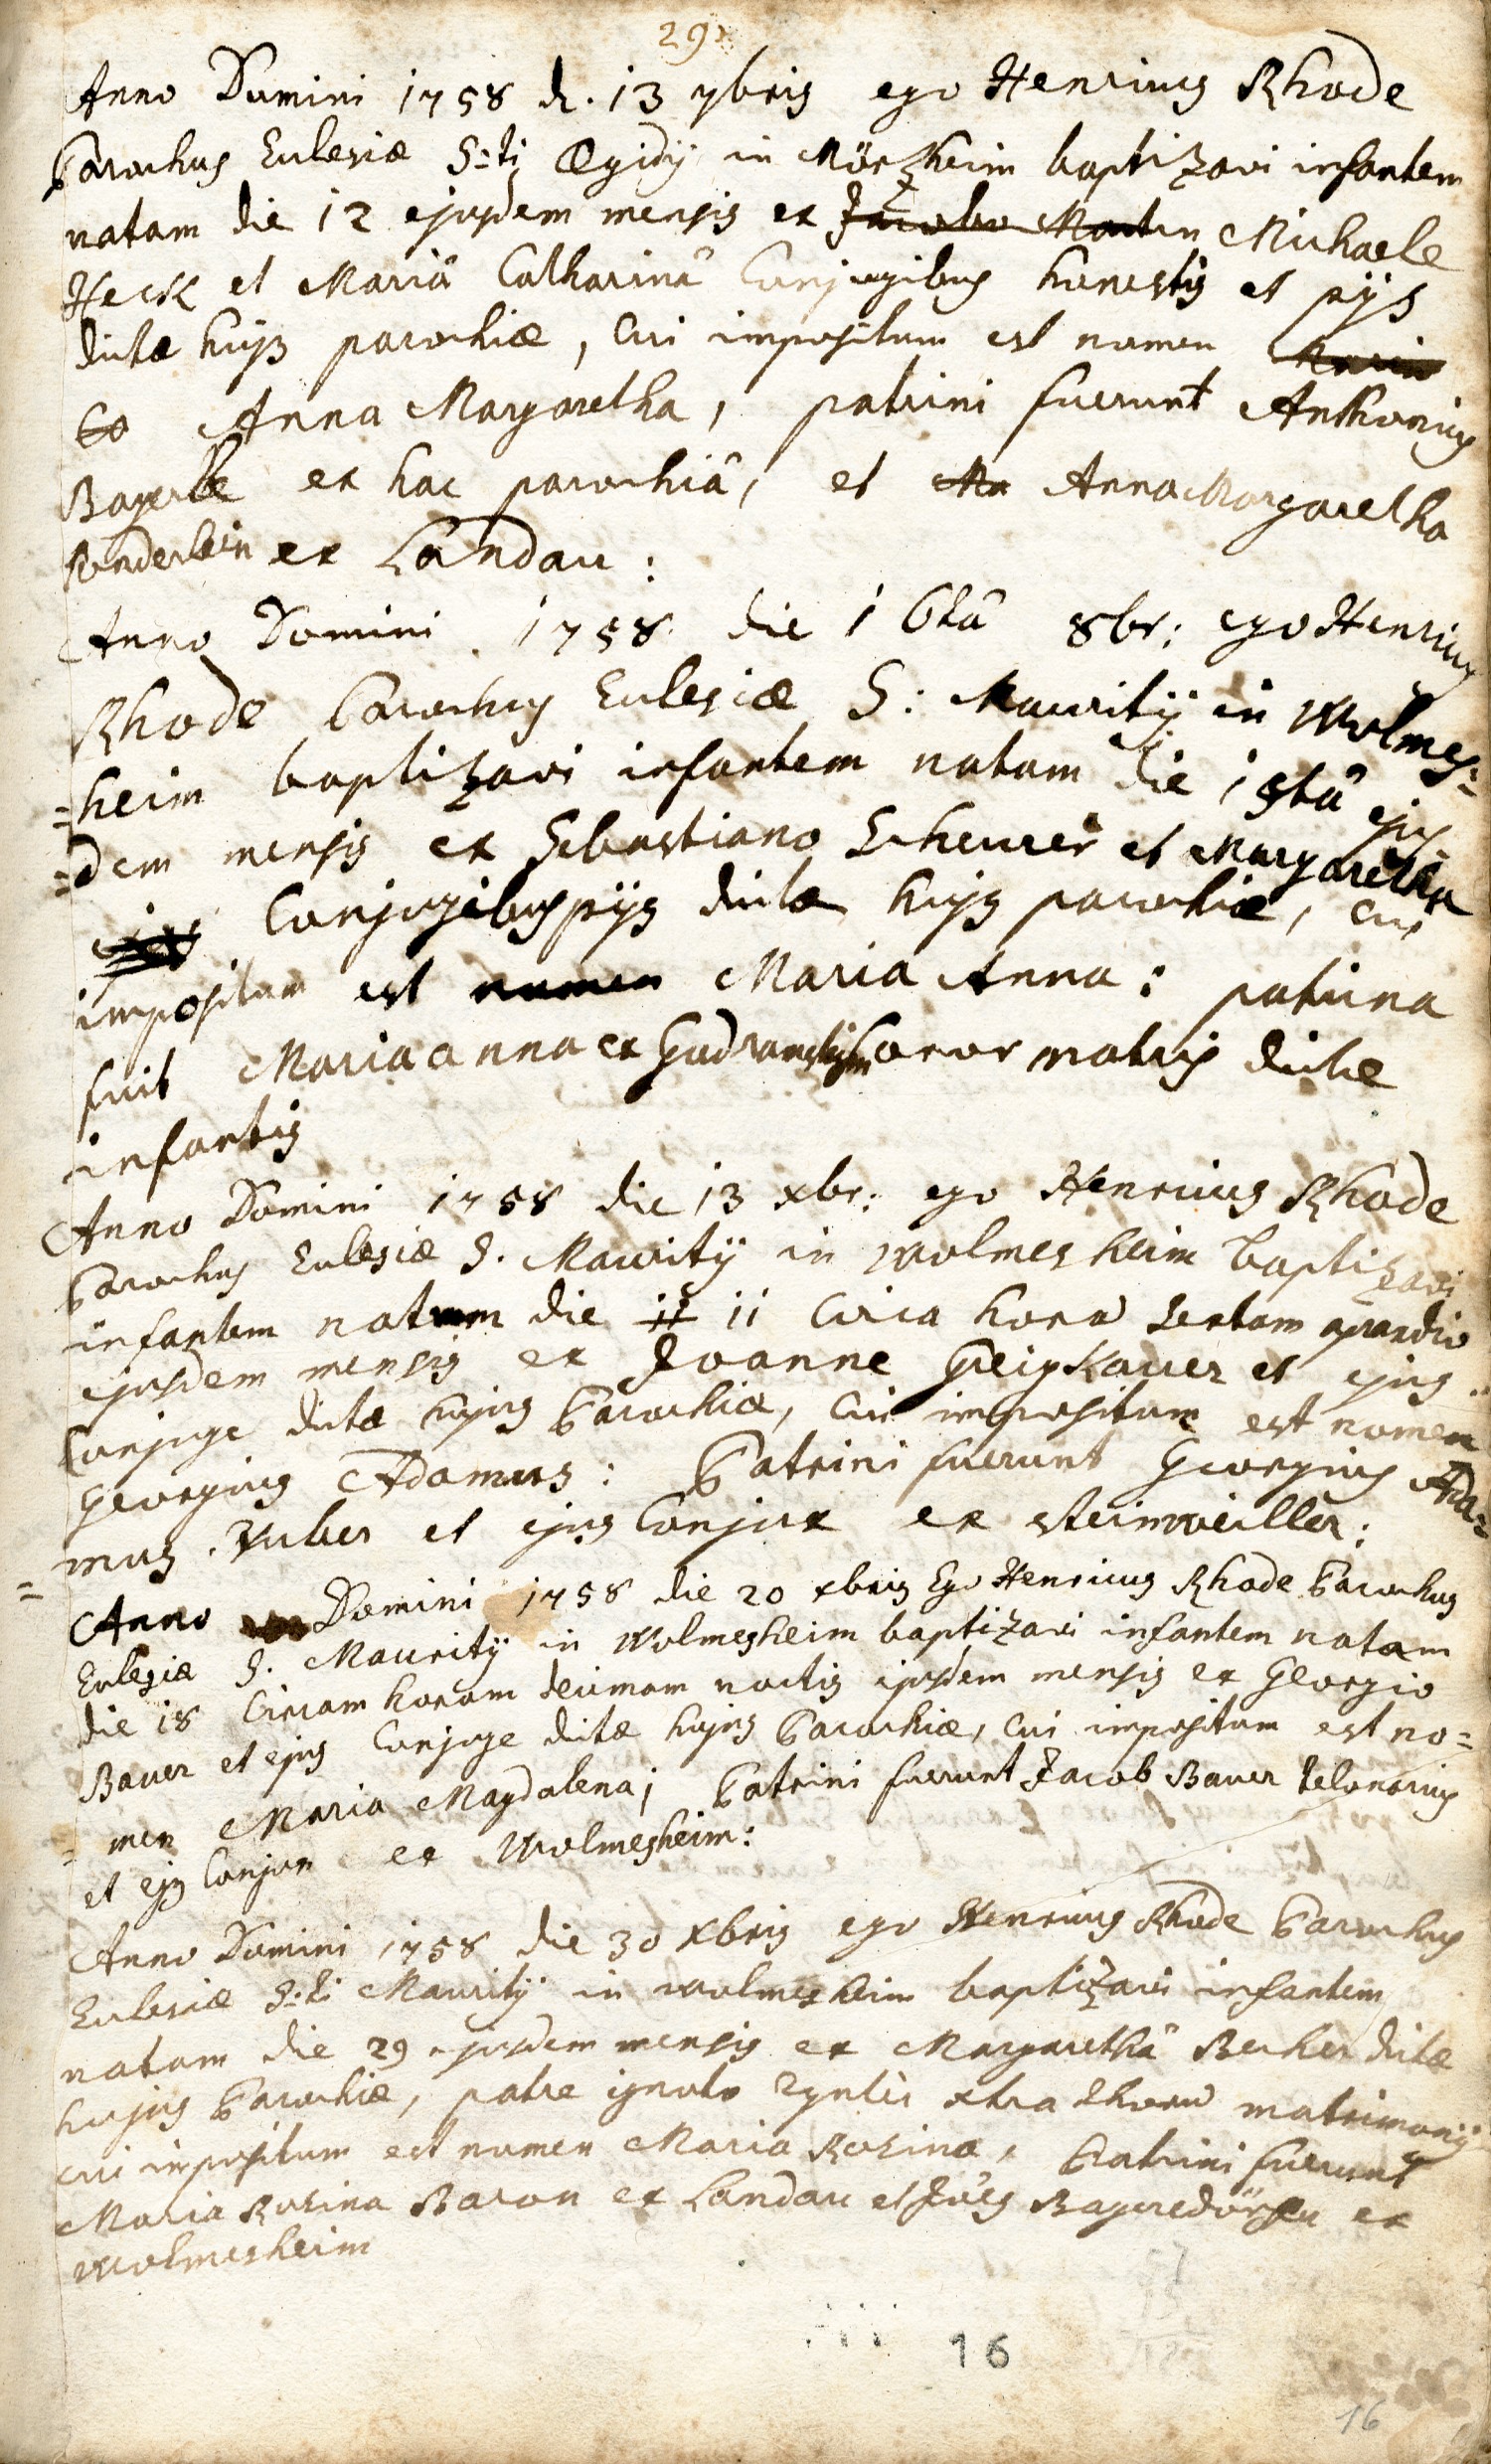 29
Anno Domini 1758 d. 13 7bris ego Henricus Rhode
Parochus Eclesiæ S:ti Ægidÿ in Mörzheim baptizavi infantem
natam die 12 ejusdem mensis ex Jacobo Martin Michaele
Heck et Mariâ Catharinâ Conjugibus honestis et pÿs
dictæ hujus parochiæ, cui impositum est nomen Maria
Anna Margaretha, patrini fuerunt Anthonius
ex hac parochiâ, et Ma Anna Margaretha
ex Landau:
Anno Domini 1758 die 16tâ 8br: ego Henricus
Rhode Parochus Eclesiæ S: Mauritÿ in Wolmes=
=heim baptizavi infantem natam die 15tâ ejus
=dem mensis ex Sebastiano Scheurer et Margaretha
Conjugibus pÿs dictæ hujus parochiæ, cui
impositum est nomen Maria Anna: patrina
fuit Maria anna ex soror matris dictæ
infantis
Anno Domini 1758 die 13 xbr: ego Henricus Rhode
Parochus Eclesiæ S. Mauritÿ in Wolmesheim baptizavi
infantem natum die 11 11 circa hora sextam
ejusdem mensis ex Joanne et ejus
Conjuge dictæ hujus Parochiæ, cui impositum est nomen
Georgius Adamus: Patrini fuerunt Georgius Ada=
=mus Huber et ejus Conjux ex steinweiller:
Anno Domini 1758 die 20 xbris Ego Henricus Rhode Parochus
Eclesiæ S. Mauritÿ in Wolmesheim baptizavi infantem natam
die 18 Circam horam decimam noctis ejusdem mensis ex Georgio
Bauer et ejus Conjuge dictæ hujus Parochiæ, cui impositum est no=
=men Maria Magdalena; Patrini fuerunt Jacob Bauer telonarius
et ejus Conjux ex Wolmesheim:
Anno Domini 1758 die 30 xbris ego Henricus Rhode Parochus
Eclesiæ S:ti Mauritÿ in wolmesheim baptizavi infantem
natam die 29 ejusdem mensis ex Margarethâ Becher dictæ
hujus Parochiæ, patre ignoto xtra thorum matrimonÿ
cui impositum est nomen Maria Rosina, Patrini fuerunt
Maria Rosina Baron ex Landau et Jörg ex
wolmesheim
16
16